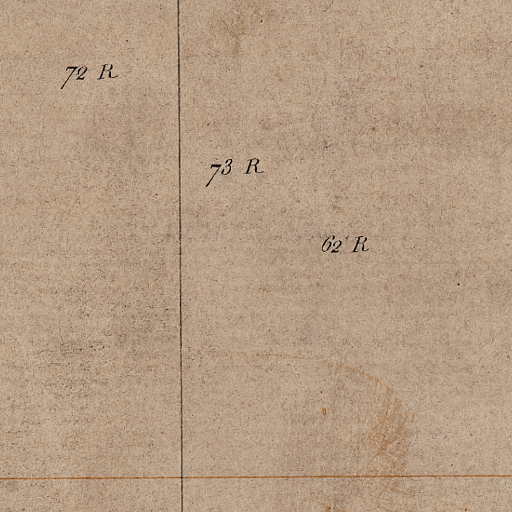 72 R
73 R
62 R